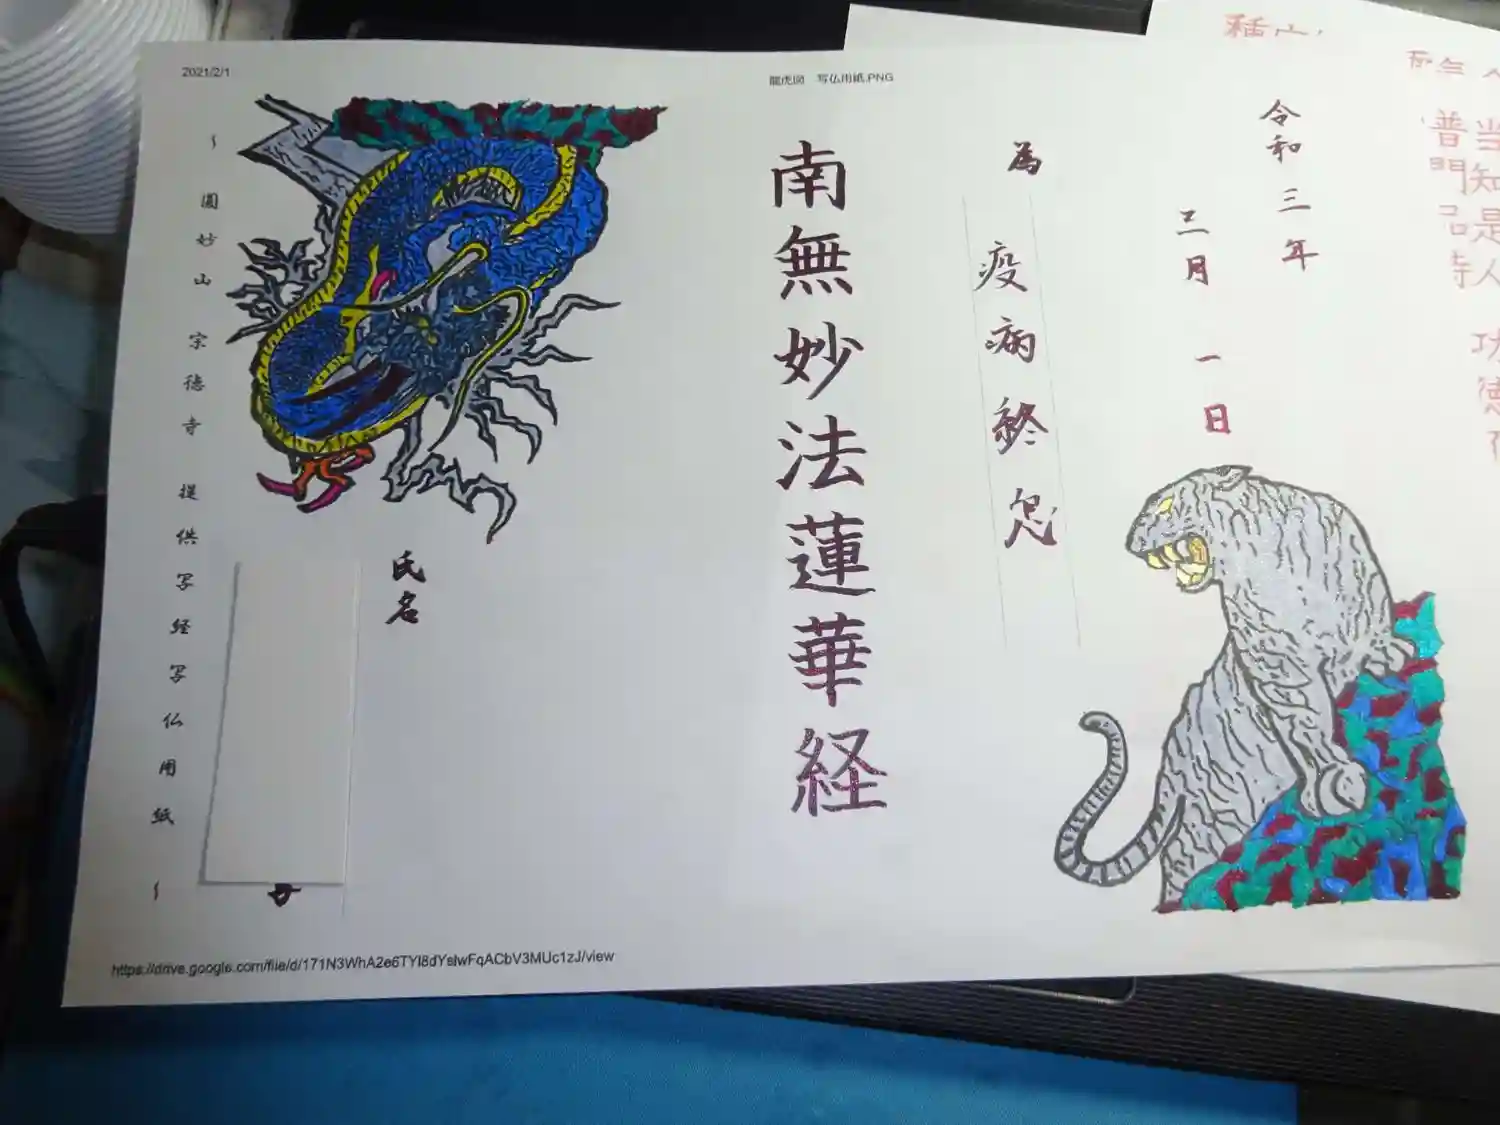 2021/2/1
龍虎図 写仏用紙.PNG
令和三年
二月一日
為
疫病終息
南無妙法蓮華経
氏名
~圓妙山 宗徳寺 提供写経写仏用紙~
https://drive.google.com/file/d/171N3WhA2e6TYI8dYslwFqACbV3MUc1zJ/view
当知是人 功徳
普門品